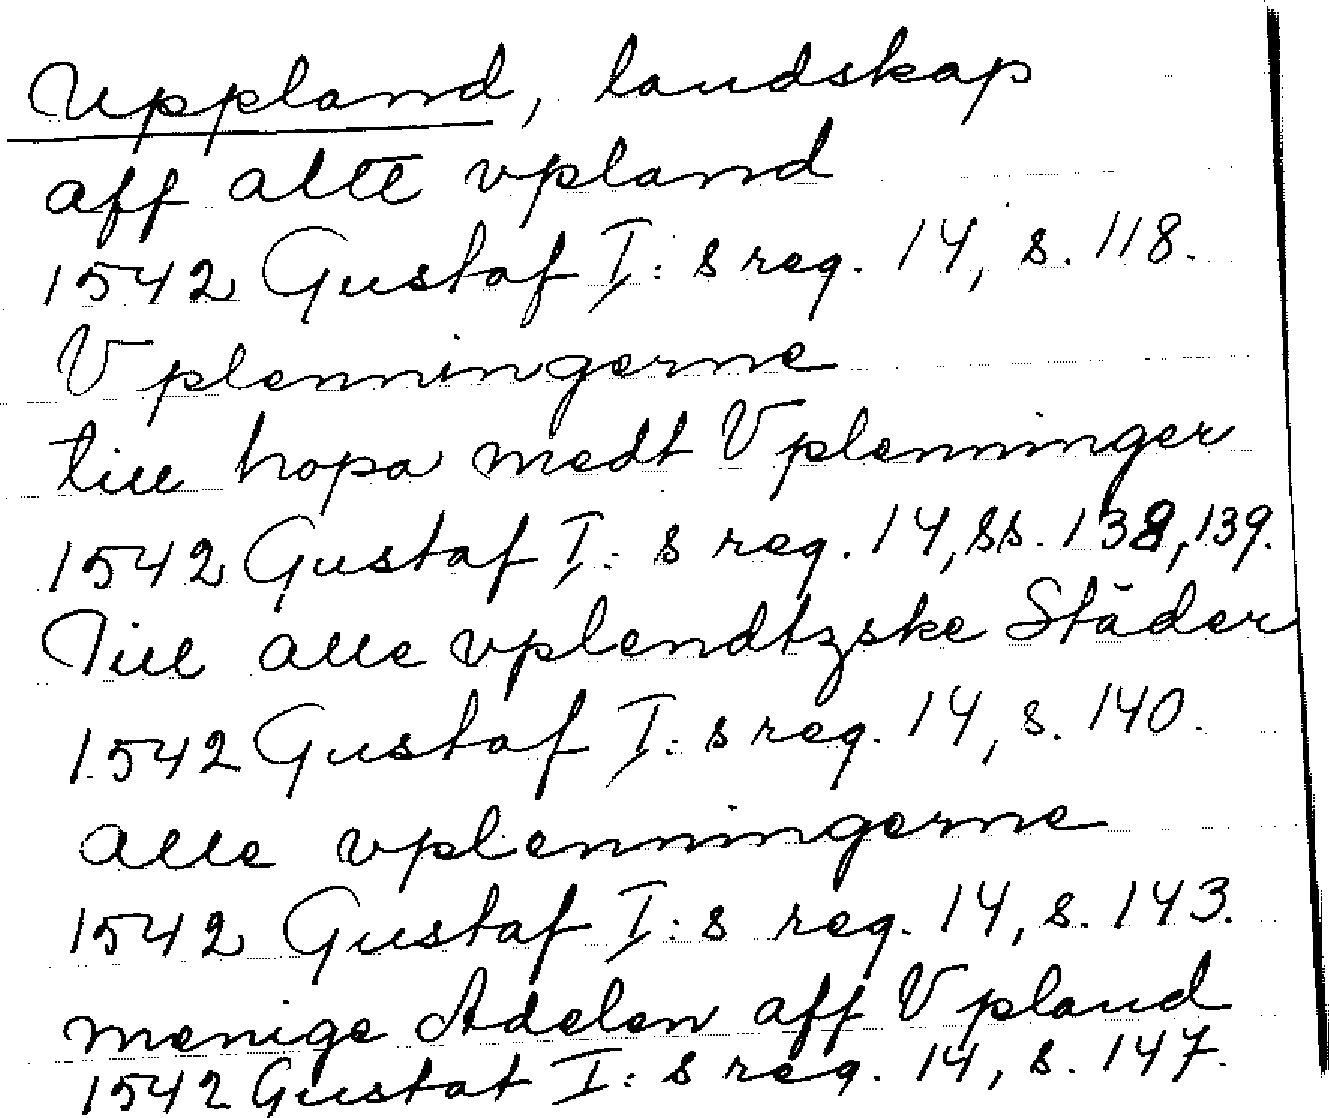 Uppland, landskap
aff alte vpland
1542 Gustaf I:s reg. 14, s. 118.
Vplenningerne
till hopa medt Vplenninger
1542 Gustaf I:s reg. 14, ss. 138, 139.
Till alle vplendtzske Städer
1542 Gustaf I:s reg. 14, s. 140.
alle vplenningerne
1542 Gustaf I:s reg. 14, s. 143.
menige Adelen aff Vpland
1542 Gustaf I:s reg. 14, s. 147.